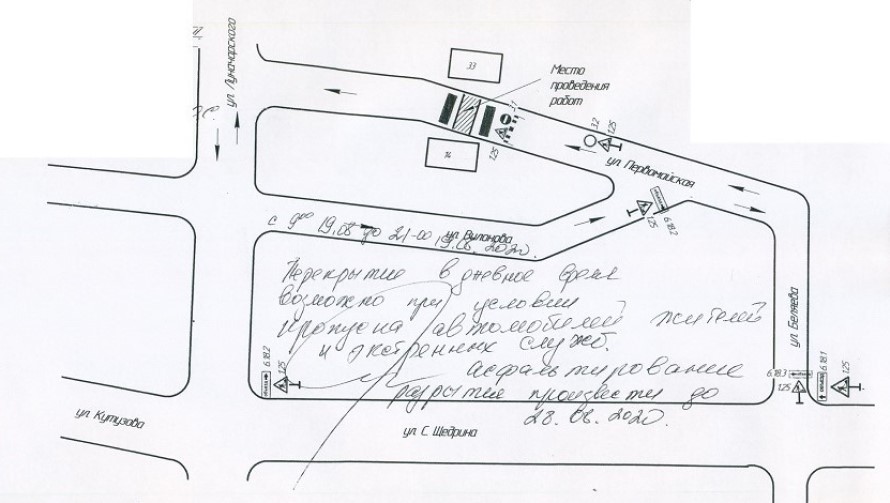 ул. Луначарского
33
Место
проведения
работ
3.1
1.25
34
3.2
1.25
ул. Первомайская
1.25
6.18.2
ул. Вилонова
с 19.08 до 21-00 19.08.2020.
Перекрытие в дневное время
возможно при условии
пропуска автомобилей жителей
и экстренных служб.
асфальтирование
разрытия произвести до
28.08.2020.
ул. Беляева
6.18.2
1.25
6.18.3
1.25
6.18.1
1.25
ул. Кутузова
ул. С. Щедрина